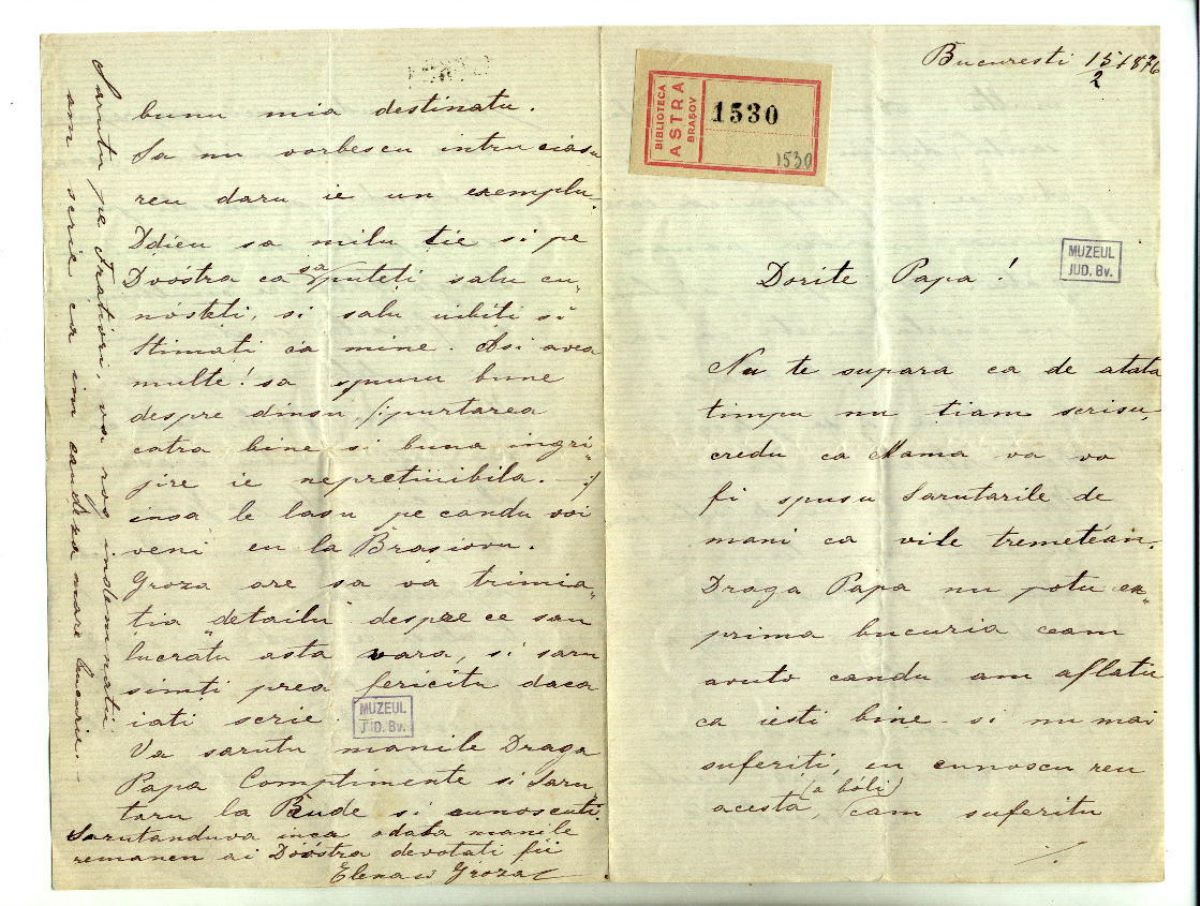 Bucuresti 15/2 1876
BIBLIOTECA
ASTRA
BRAȘOV
1530
1530
MUZEUL
JUD. Bv.
Dorite Papa!
Nu te supara ca de atata
timpu nu tiam scrisu,
credu ca Mama va va
fi spusu Sarutarile de
mani ca vile tremeteam.
Draga Papa nu potu ex„
prima bucuria ceam
avuto candu am aflatu
ca iesti bine si nu mai
suferiti, eu cunoscu reu
acesta, (a bóli) cam suferitu
./.
bunu mia destinatu.
Sa nu vorbescu intru ciasu
reu daru ie un exemplu.
Ddieu sa milu tie si pe
Dvóstra ca sa puteti salu cu„
nósteti, si salu iubiti si
Stimati ca mine. Asi avea
multe! sa spunu bune
despre dinsu, /:purtarea
catra bine si buna ingri„
jire ie nepretiuibila. :/
insa le lasu pe candu voi
veni eu la Brasiovu.
Groza are sa va trimia„
tia "detailu" despre ce sau
lucratu asta vara, si saru
simti prea fericitu daca
iati scrie.
MUZEUL
JUD. Bv.
Va sarutu manile Draga
Papa Complimente si Saru„
taru la Rude si cunoscuti.
Sarutanduva inca odata manile
remanem ai Dvóstra devotati fii
Elena si Groza
Sarutu pe Fratiori, va rog indemnatii
am scrie ca im caudeza mare bucurie. -